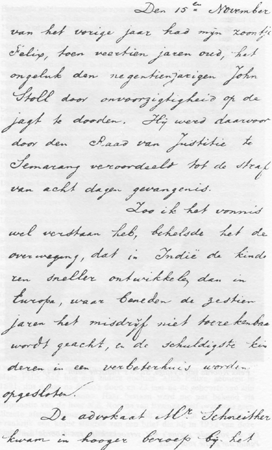 Den 15den November
van het vorige jaar had mijn zoontje
Felix, toen veertien jaren oud, het
ongeluk den negentienjarigen John
Stoll door onvoorzigtigheid op de
jagt te dooden. Hij werd daarvoor
door den Raad van Justitie te
Semarang veroordeeld tot de straf
van acht dagen gevangenis.
Zoo ik het vonnis
wel verstaan heb, behelsde het de
overweging, dat in Indië de kinde
ren sneller ontwikkelen dan in
Europa, waar beneden de zestien
jaren het misdrijf niet toerekenbaar
wordt geacht, en de schuldigste kin
deren in een verbeterhuis worden
opgesloten.
De advokaat Mr. Schneither
kwam in hooger beroep bij het